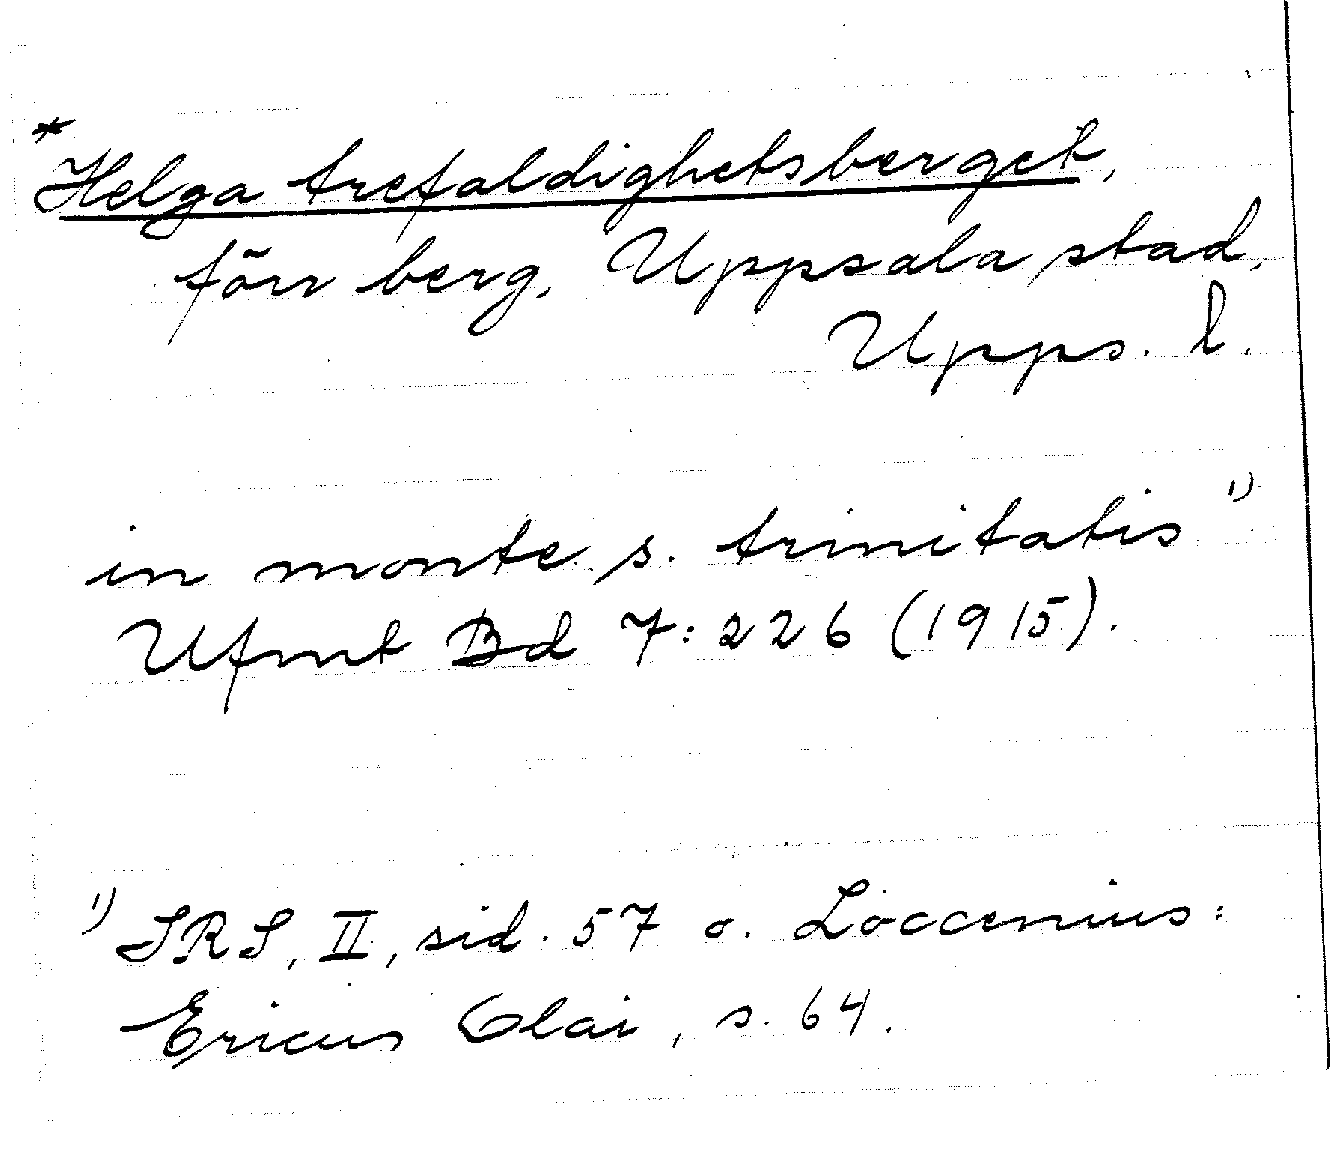 *Helga trefaldighetsberget,
förr berg, Uppsala stad,
Upps. l.
in monte s. trinitatis 1)
Ufmt Bd 7:226 (1915).
1) SRS, II, sid. 57 o. Loccenius:
Ericus Olai, s. 64.